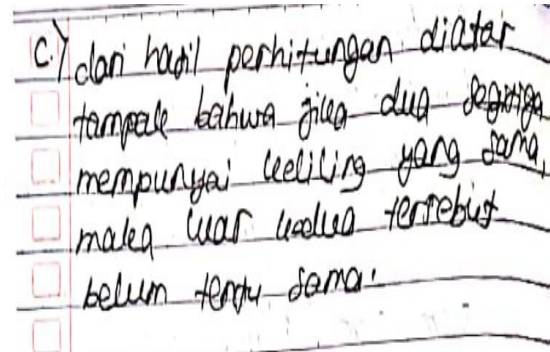 c.) dari hasil perhitungan diatas
tampak bahwa jika dua segitiga
mempunyai keliling yang sama,
maka luas kedua tersebut
belum tentu sama.